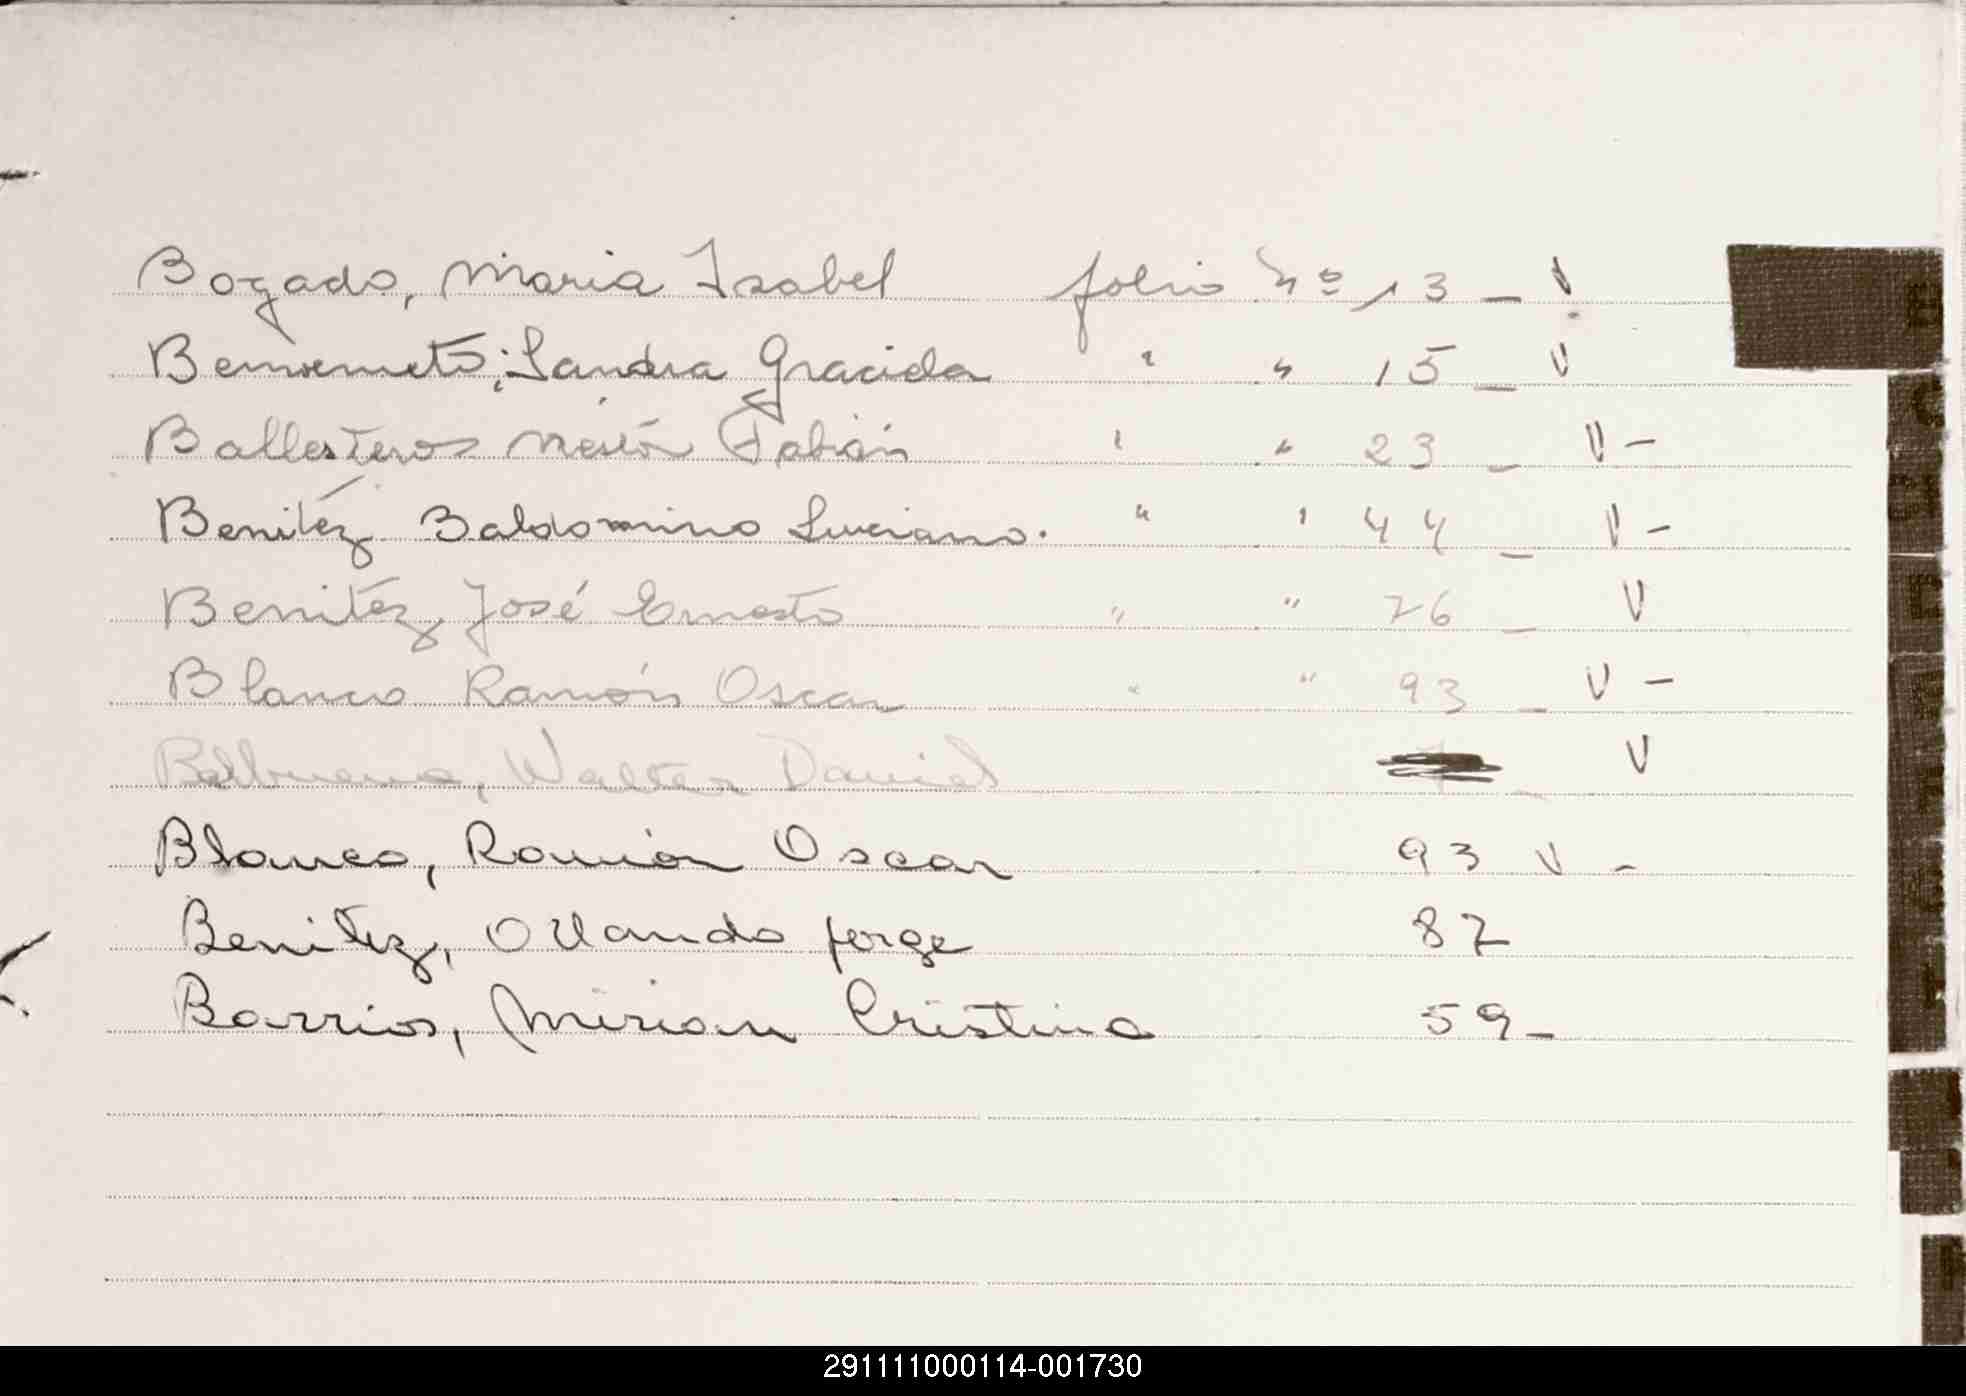 Bogado, Maria Isabel folio Nº 13 – V
Benvenuto, Sandra Graciela " " 15 – V
Ballesteros Néstor Fabián " " 23 – V –
Benitéz Baldomino Luciano. " " 44 – V –
Benitéz José Ernesto " " 76 – V
Blanco Ramón Oscar " " 93 – V –
Balbuena, Walter Daniel – V
Blanco, Ramón Oscar 93 V –
Benitez, Orlando Jorge 87
Barrios, Mirian Cristina 59 –
B
C
D
E
F
291111000114-001730